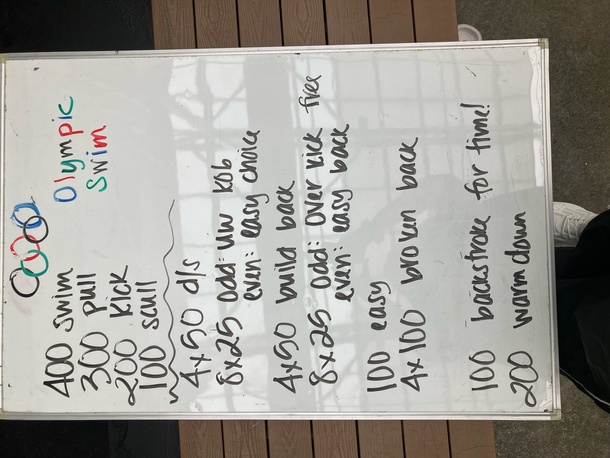 400 swim
Olympic
300 pull
Swim
200 kick
100 scull
4x50 d/s
8x25 odd: uw kob
even: easy choice
4x50 build back
8x25 odd: over kick free
even: easy back
100 easy
4x100 broken back
100 backstroke for time!
200 warm down